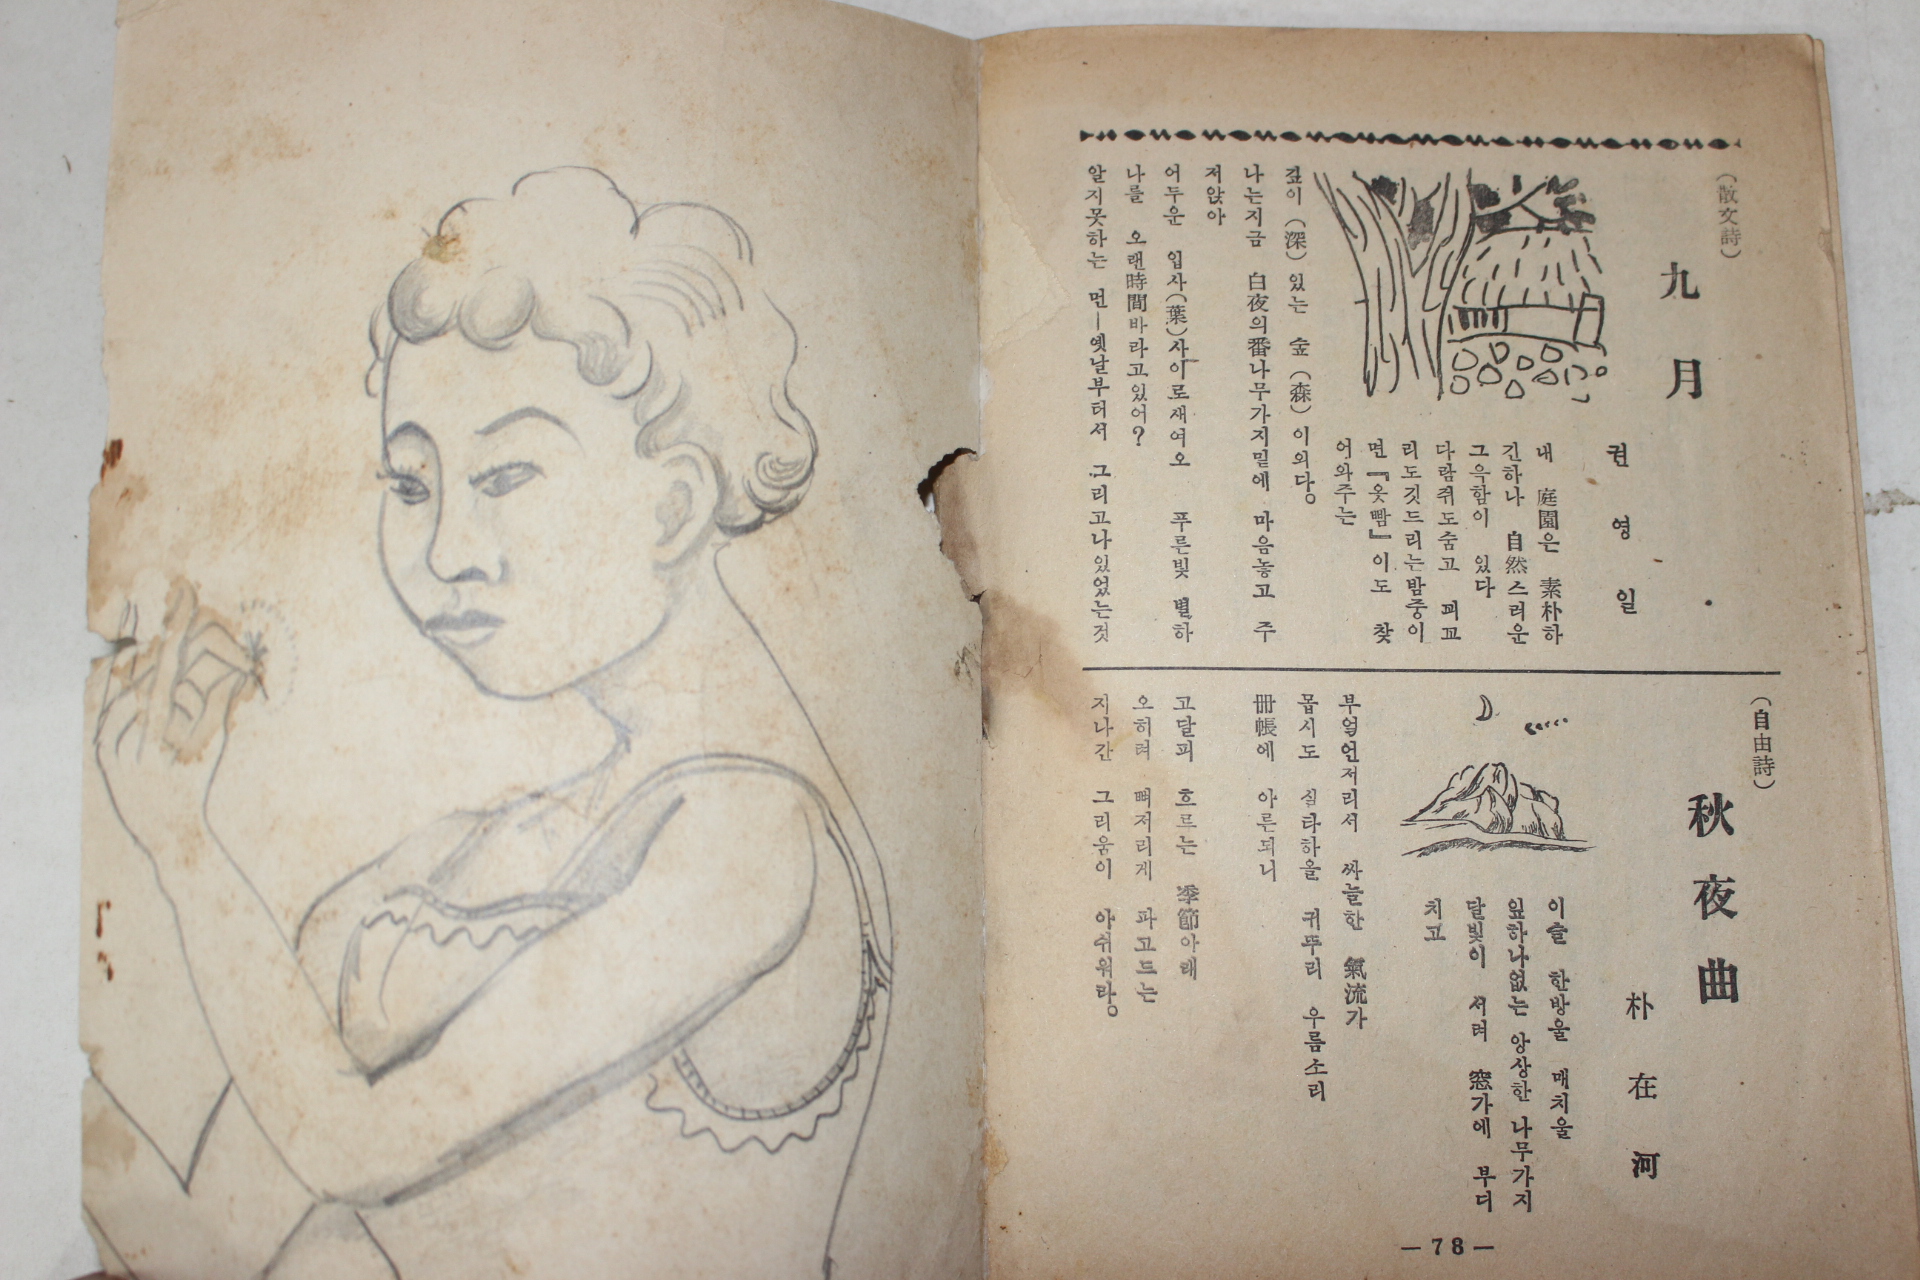 (散文詩)
九月
권영일
내 庭園은 素朴하
긴하나 自然스러운
그윽함이 있다
다람쥐도숨고 꾀꼬
리도깃드리는밤중이
면『옷빰』이도 찾
어와주는
깊이(深)있는 숲(森)이의다。
나는지금 白夜의番나무가지밑에 마음놓고 주
저앉아
어두운 입사(葉)사이로새여오 푸른빛 별하
나를 오랜時間바라고있어?
알지못하는 먼—옛날부터서 그리고나있었는것
(自由詩)
秋夜曲
朴在河
이슬 한방울 매치울
잎하나없는 앙상한 나무가지
달빛이 서려 窓가에 부디
치고
부엌언저리서 싸늘한 氣流가
몹시도 싫타하올 귀뚜리 우름소리
冊帳에 아른되니
고달피 흐르는 季節아래
오히려 뼈저리게 파고드는
지나간 그리움이 아쉬워라。
—78—